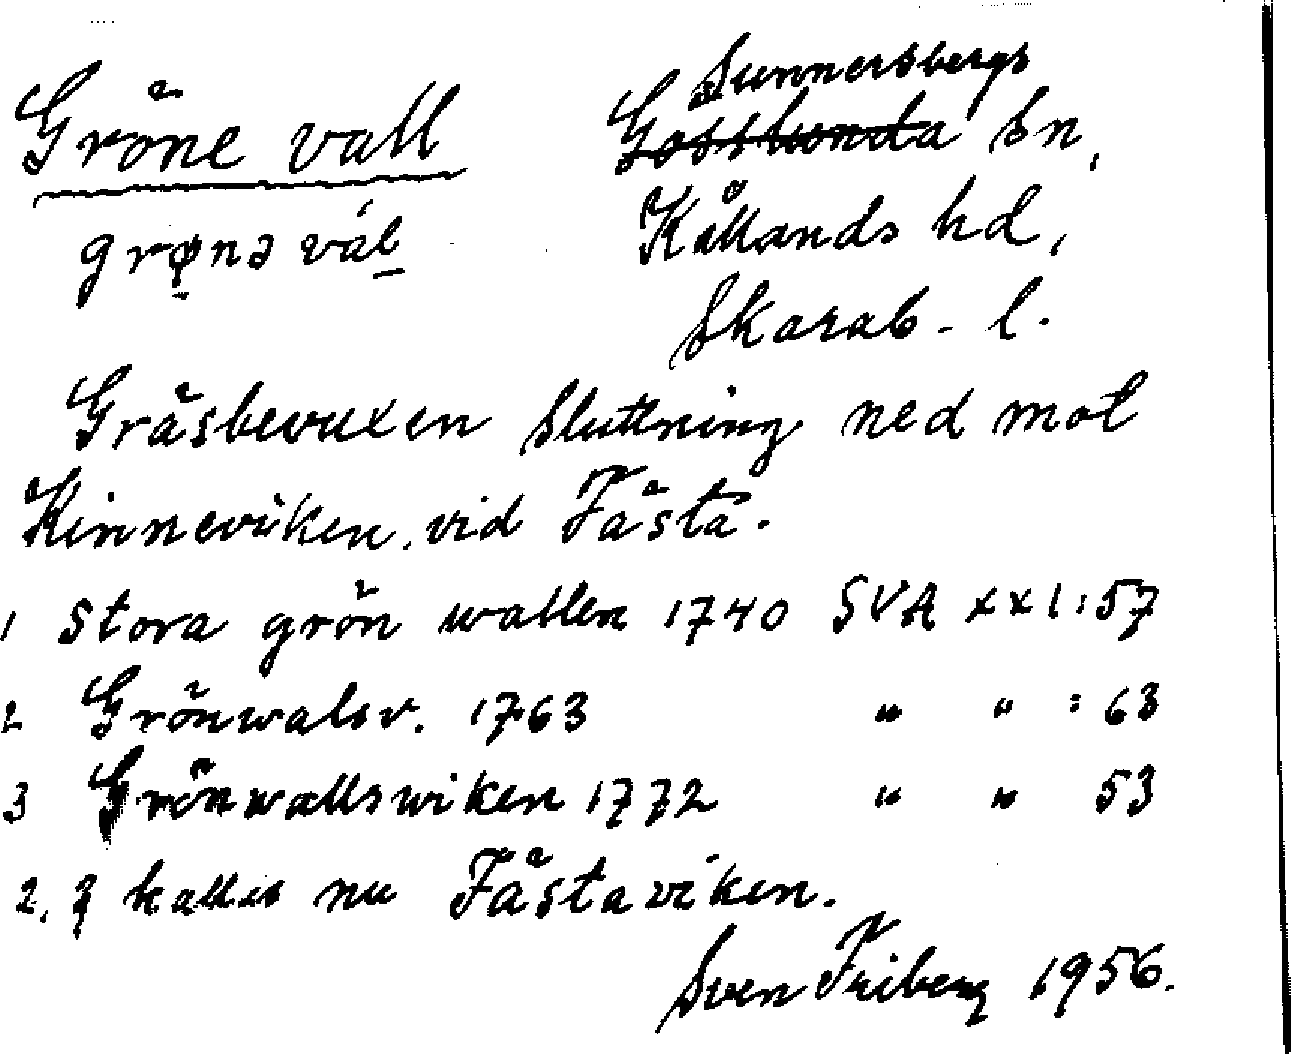 Gröne vall
Sunnersbergs
Gösslunda sn,
grønə vál
Kållands hd,
Skarab. l.
Gräsbevuxen sluttning ned mot
Kinneviken, vid Fästa.
1 Stora grön wallen 1740 SVA XXI:57
2 Grönwalsv. 1763 " " :63
3 Grönwallswiken 1772 " " 53
2, 3 kallas nu Fästaviken.
Sven Friberg 1956.